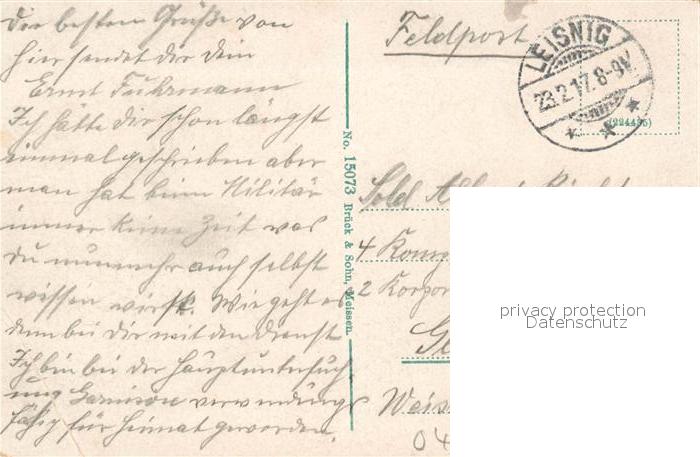 Die besten Grüße von
hier sendet dir dein
Ernst Fuhrmann
Ich hätte dir schon längst
einmal geschrieben aber
man hat beim Militär
immer keine Zeit was
du nunmehr auch selbst
wissen wirst. Wie geht es
denn bei dir mit den Dienst
Ich bin bei der Hauptuntersuch
ung Garnison verwendungs
fähig für Heimat geworden.
No. 15073 Brück & Sohn, Meissen.
Feldpost
LEISNIG
23.2.17. 8-9V.
(224495)
Sold
4 Komp
2 Korpor
privacy protection
Datenschutz
04